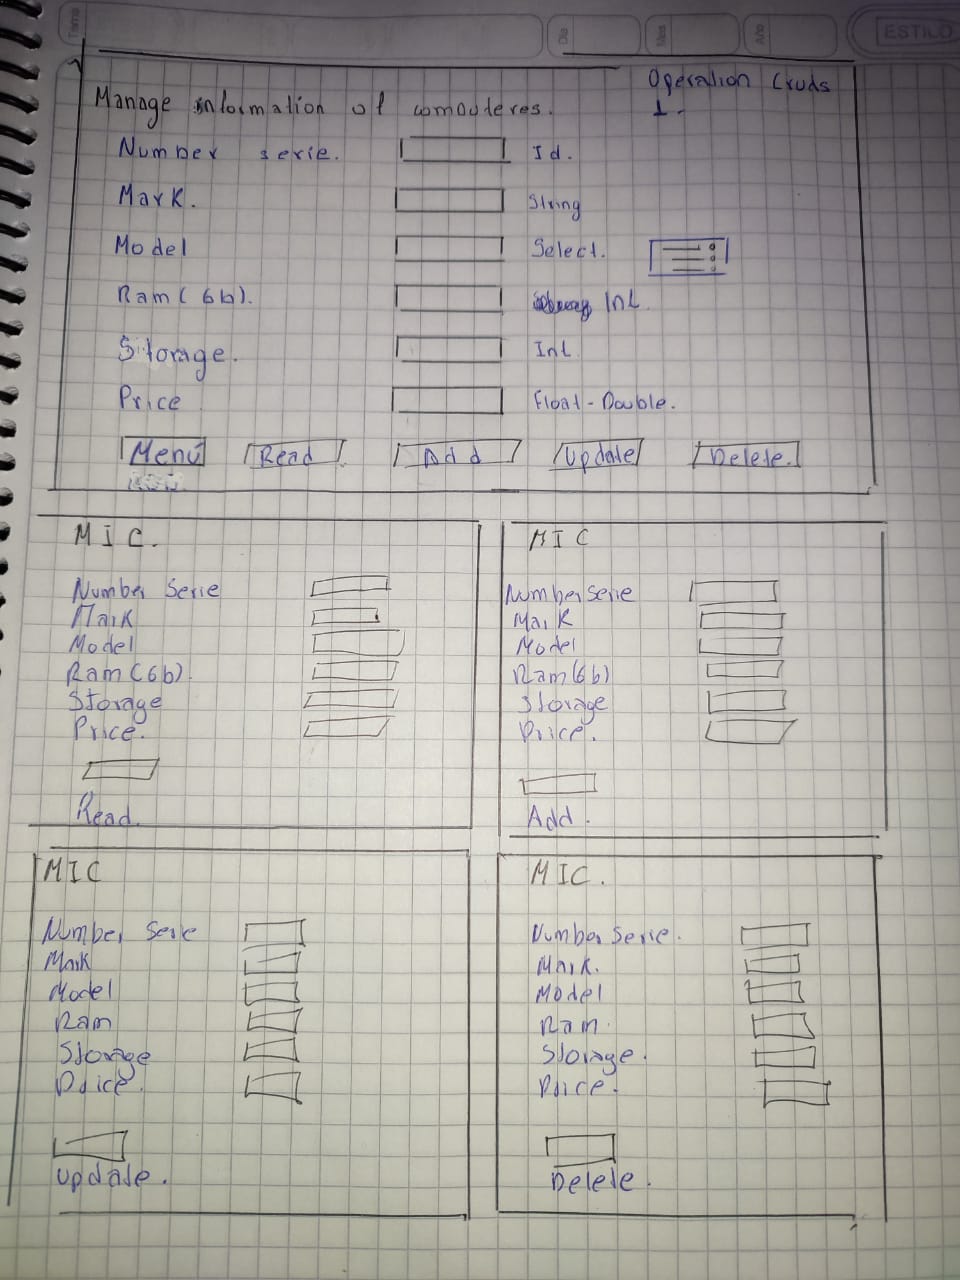 Tema
Dia
Mes
Año
ESTILO
Operation Cruds
1.
Manage information of computeres.
Number serie. Id.
Mark. String
Model Select.
Ram (Gb). Int.
Storage. Int
Price Float-Double.
Menú Read Add Update Delete.
MIC.
Number Serie
Mark
Model
Ram (Gb).
Storage
Price.
Read.
MIC
Number Serie
Mark
Model
Ram (Gb)
Storage
Price.
Add.
MIC
Number Serie
Mark
Model
Ram
Storage
Price.
Update.
MIC.
Number Serie.
Mark.
Model
Ram.
Storage.
Price.
Delete.